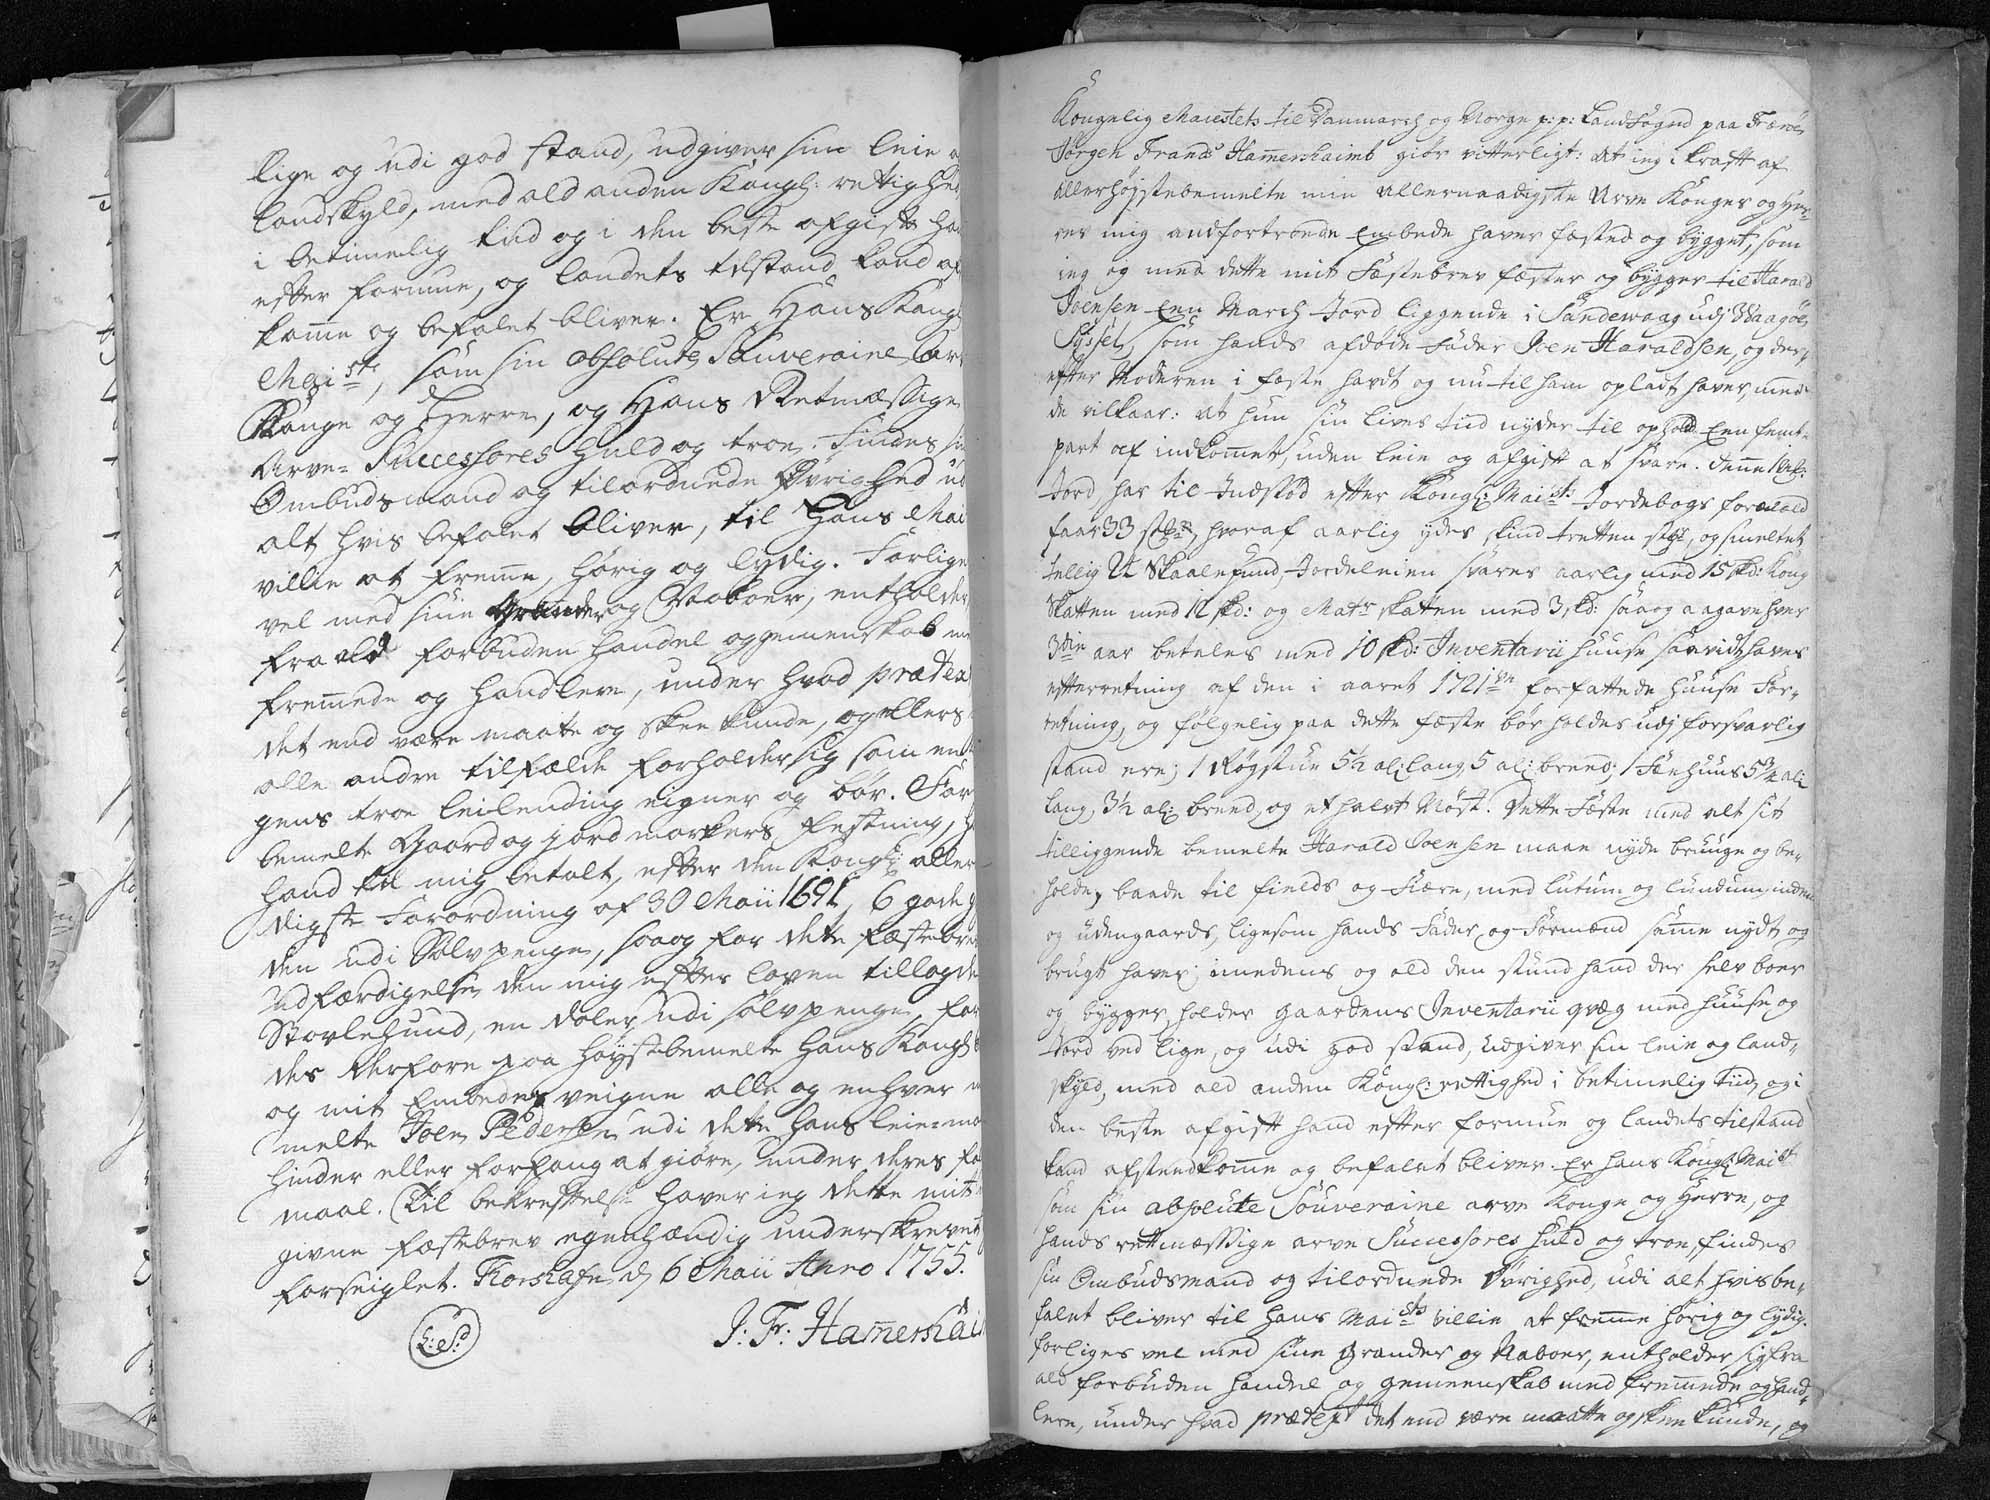 lige og udi god stand, udgiver sin leie o
landskyld, med ald anden Kongl: rettighed
i betimelig tiid og i den beste afgift ha
efter formue, og landets tilstand kand af
komme og befalet bliver. Er Hans Kongl
Mai^sts, som sin absolute Souveraine Arv
Konge og Herre, og Hans Retmæssige
Arve= Successores huld og troe, findes si
Ombudsmand og tilordnede Øvrighed ud
alt hvis befalet bliver, til Hans Mai
villie at fremme, hørig og lydig. Forlige
vel med sine Grander og Naboer, entholder
fra ald forbuden handel og gemenskab me
fremmede og handlere, under hvad prætex
det end være maate og skee kunde, og ellers
alle andre tilfælde forholder sig som en
gens troe leilending eigner og bør. For
bemelte Gaard og jordmarkers festning, h
hand til mig betalt, efter den Kongl: aller
digste Forordning af 30 Maii 1691, 6 gode g
den udi Sølvpenge, saa og for dette fæstebre
udfærdigelse den mig efter loven tillagde
Støvlehund, en daler udi sølvpenge, for
des derfore paa høystbemelte Hans Kongl
og mit Embedes veigne alle og enhver
melte Joen Pedersen udi dette hans leie=mo
hinder eller forfang at giøre, under deres fa
maal. Til bekreftelse haver ieg dette mit
givne fæstebrev egenhændig underskrevet
forseiglet. Thorshafn d 6 Maii Anno 1755.
J: Fr: Hamershai
L: S:
Kongelig Maiestets til Danmarch og Norge p: p: Landfogud paa Færöe,
Jørgen Frands Hamershaimb giør vitterligt: At ieg i kraft af
allerhøystbemelte min Allernaadigste Arve Konges og Her-
res mig andfortroede Embede haver fæsted og bygget, som
ieg og med dette mit Fæstebrev fæster og bygger til Harald
Joensen Een March Jord liggende i Sandewaag udj Waagøe
Syssel, som hands afdøde Fader Joen Haraldsen, og der-
efter Moderen i fæste havdt og nu til ham opladt haver, med
de vilkaar: at hun sin lives tiid nyder til ophold Een femte
part af indkomet, uden leie og afgift at svare. Denne 1 Mk:
Jord har til Indstød efter Kongl: Mai^sts Jordebogs formeld
faar 33 stkr, hvoraf aarlig ydes skind tretten stkr, og smeltet
tellig 2 Skaalepund, Jordeleien svares aarlig med 15 skd: Kong
skatten med 12 skd: og Matr skatten med 3 skd: saa og aagave hver
3die aar betales med 10 skd: Inventarii huuse saavidt haves
efterretning af den i aaret 1721 forfattede huuse For-
retning, og følgelig paa dette fæste bør holdes udj forsvarlig
stand ere; 1 Røgstue 5½ al: lang, 5 al: breed: 1 Fæehuus 5¾ al:
lang, 3½ al: breed, og et halvt Nøst. Dette Fæste med alt sit
tilliggende bemelte Harald Joensen maae nyde bruuge og be-
holde, baade til fields og fiære, med lutum og lundum, inden
og udengaards, ligesom hands Fader og Formænd samme nydt og
brugt haver, imedens og ald den stund hand der selv boer
og bygger, holder gaardens Inventarii qvæg med huuse og
Jord ved lige, og udi god stand, udgiver sin leie og land-
skyld, med ald anden Kongl: rettighed i betimelig tiid, og i
den beste afgift hand efter formue og landets tilstand
kand afstedkomme og befalet bliver. Er hans Kongl: Mai^st
som sin absolute Souveraine arve Konge og Herre, og
hands retmæssige arve Successores huld og troe, findes
sin Ombudsmand og tilordnede Øvrighed, udi alt hvis be-
falet bliver til hans Mai^sts villie at fremme hørig og lydig.
forliges vel med sine Grander og Naboer, entholder sig fra
ald forbuden handel og gemeenskab med fremmede og hand-
lere, under hvad prætext det end være maatte og skee kunde, og